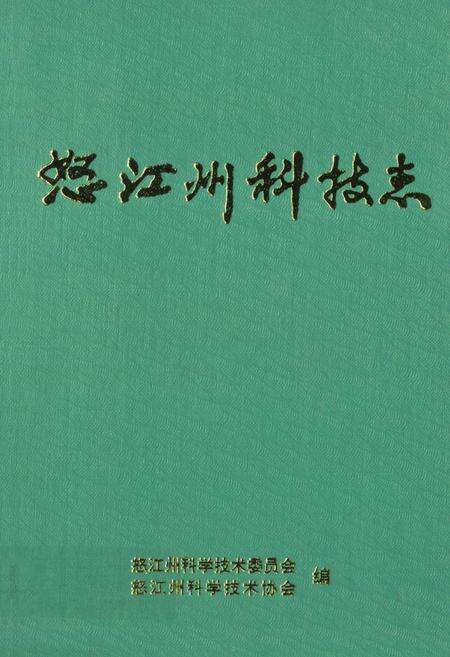 怒江州科技志
怒江州科学技术委员会
怒江州科学技术协会 编